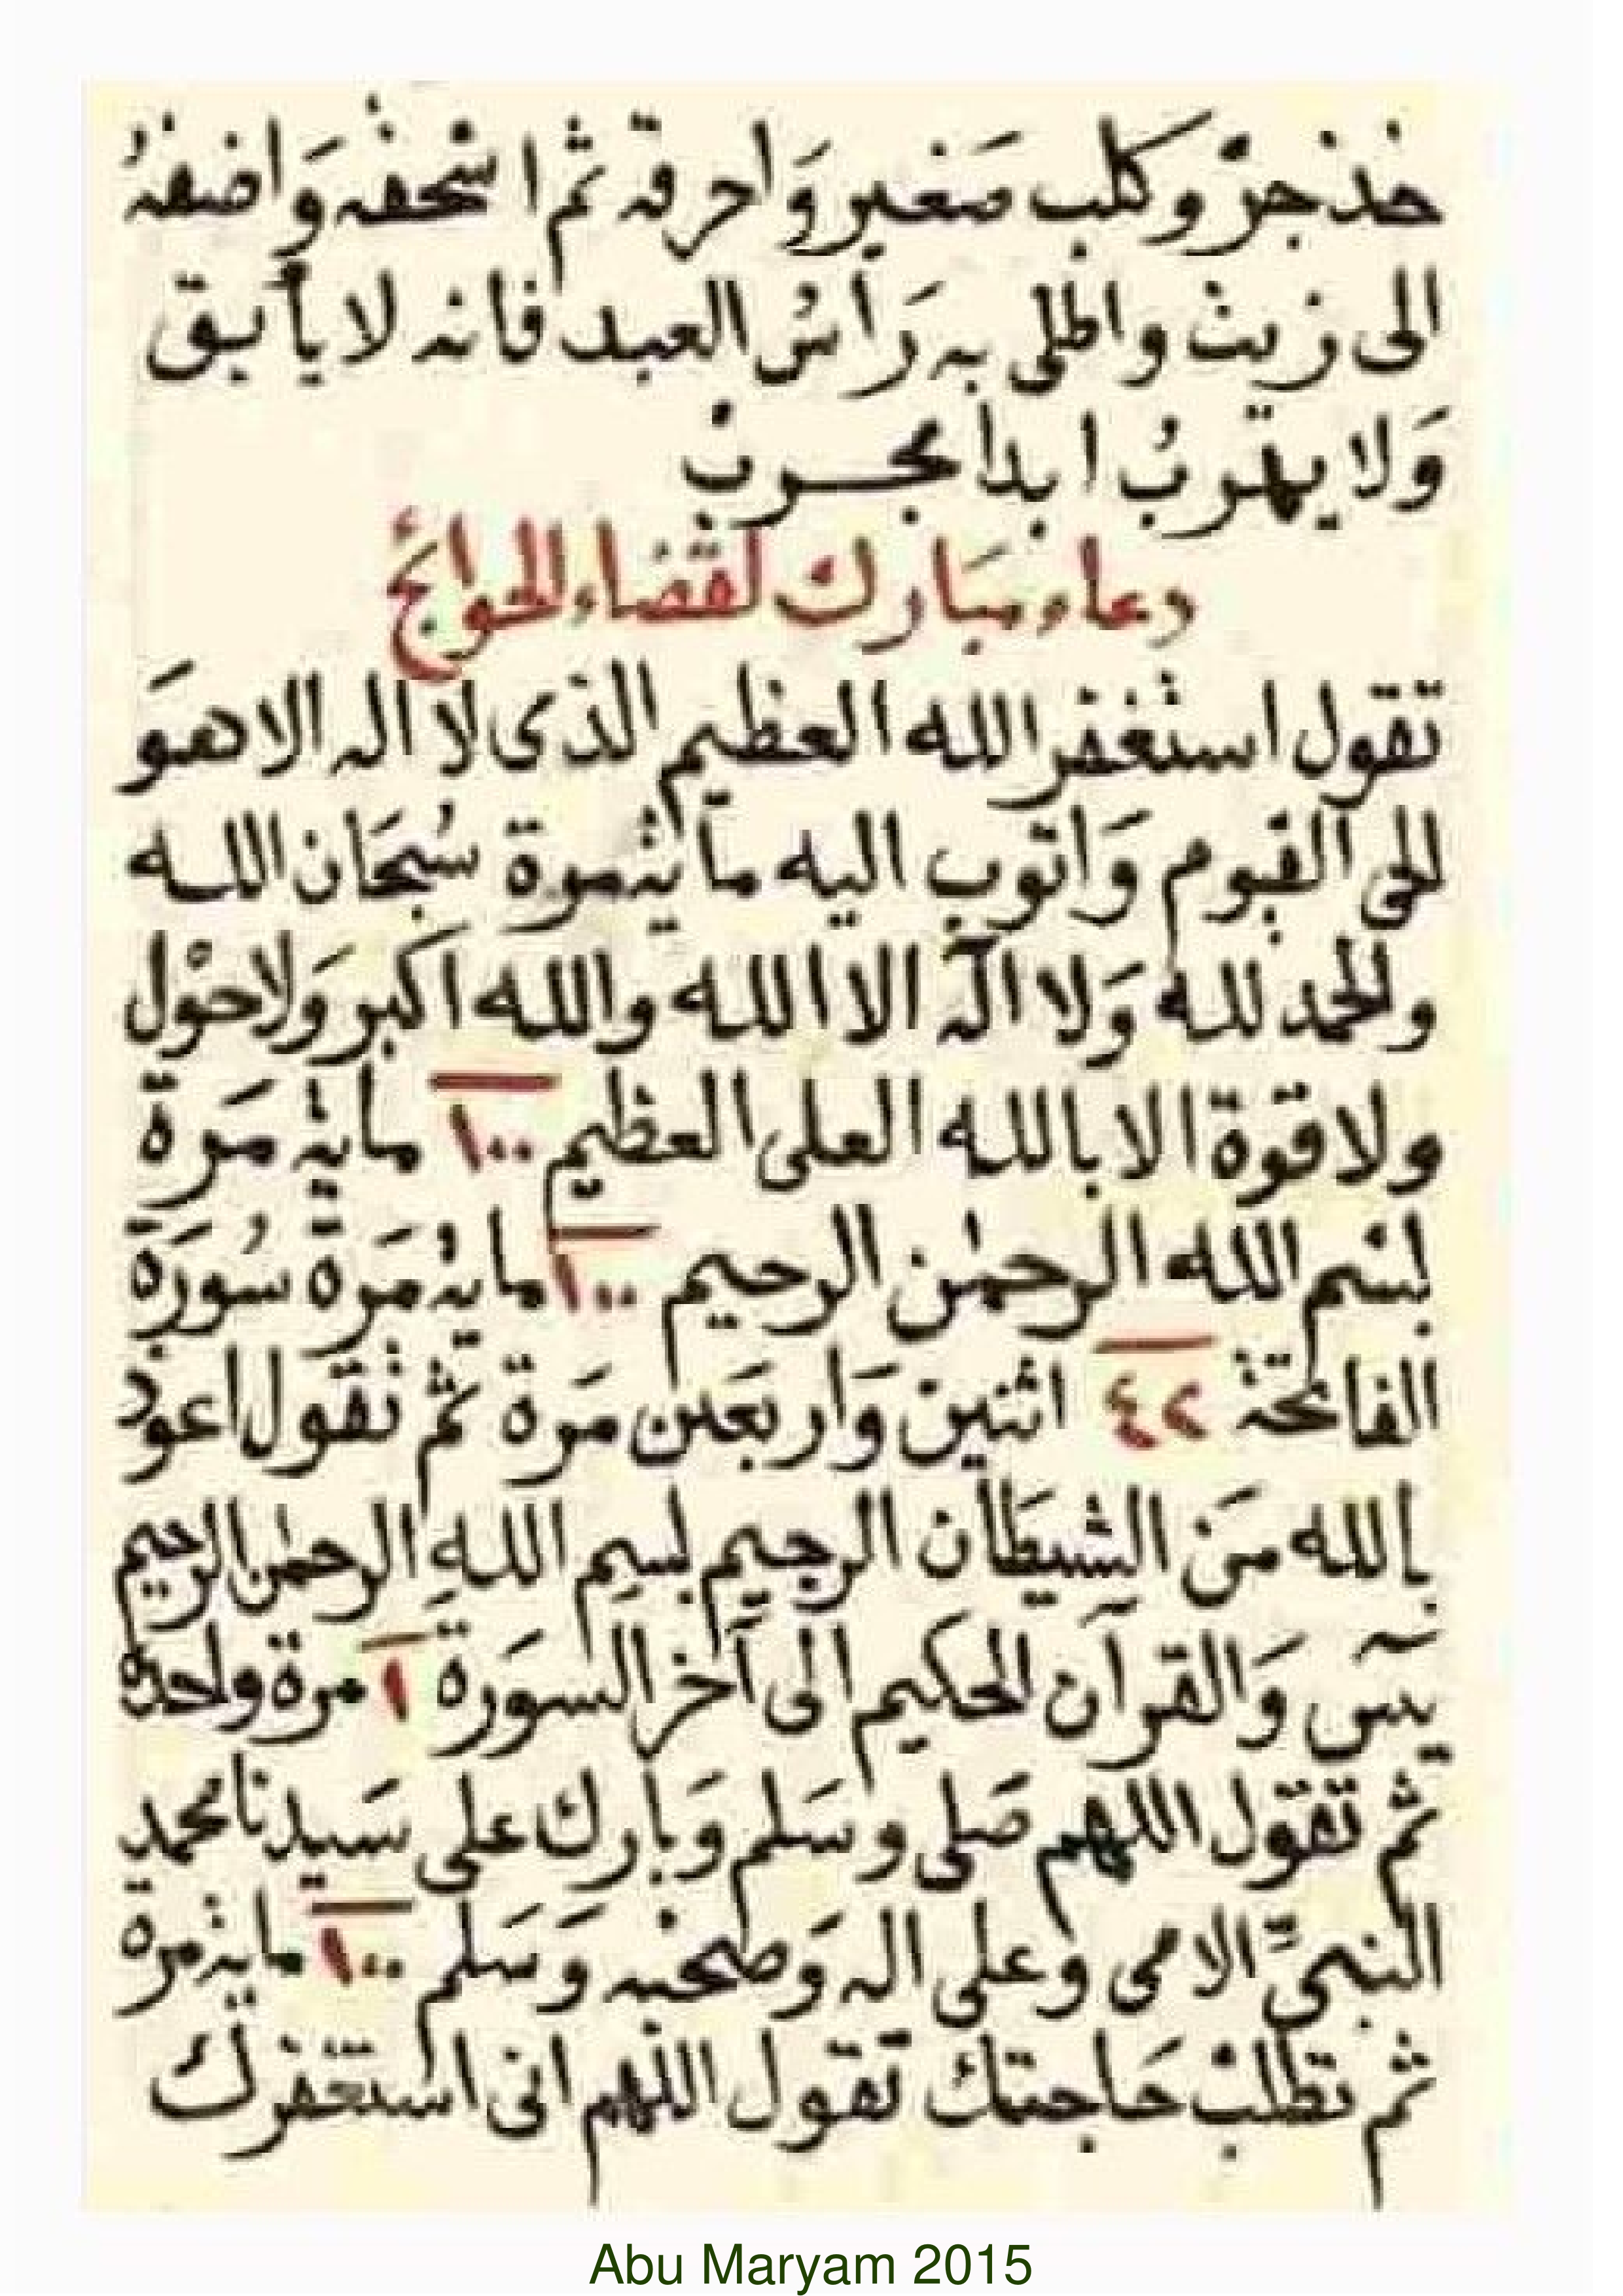 خذ جرو كلب صغير واحرقه ثم اسحقه واضفه
الى زيت واطلى به رأس العبد فانه لا يأبق
ولا يهرب ابدا مجرب
دعاء مبارك لقضاء الحوائج
تقول استغفر الله العظيم الذى لا اله الا هو
الحى القيوم واتوب اليه ماية مرة سبحان الله
والحمد لله ولا اله الا الله والله اكبر ولا حول
ولا قوة الا بالله العلى العظيم ١٠٠ ماية مرة
بسم الله الرحمن الرحيم ١٠٠ ماية مرة سورة
الفاتحة ٤٢ اثنين واربعين مرة ثم تقول اعوذ
بالله من الشيطان الرجيم بسم الله الرحمن الرحيم
يس والقرآن الحكيم الى آخر السورة ١ مرة واحدة
ثم تقول اللهم صلى وسلم وبارك على سيدنا محمد
النبى الامى وعلى اله وصحبه وسلم ١٠٠ ماية مرة
ثم تطلب حاجتك تقول اللهم انى استغفرك
Abu Maryam 2015